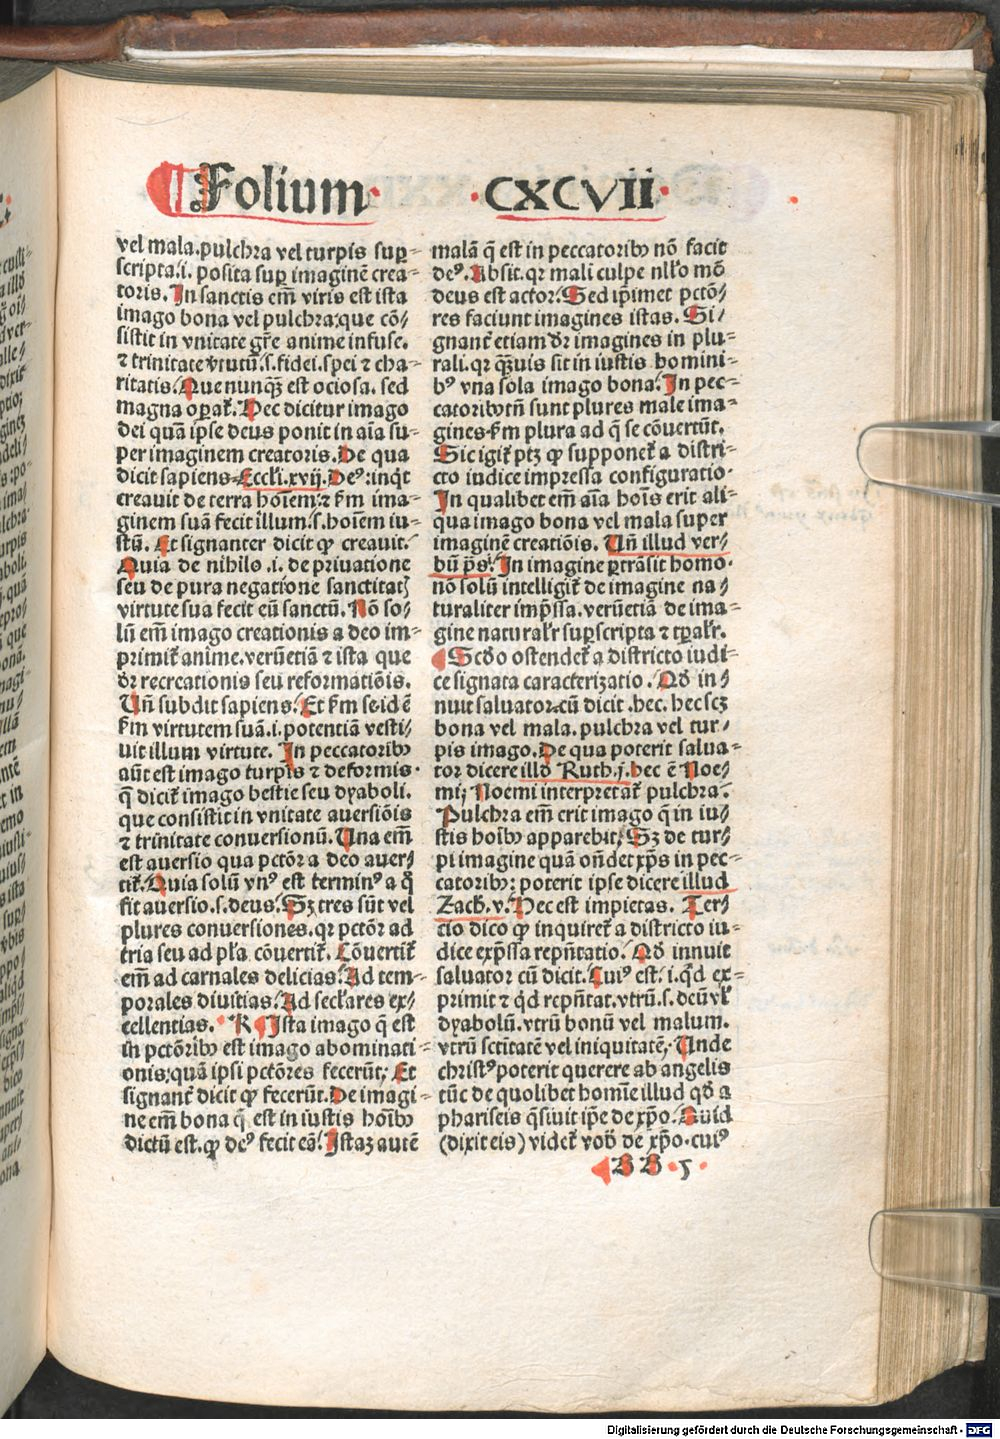 ¶ Folium · CXCVII ·
vel mala. pulchra vel turpis sup̱-
scripta. i. posita sup̱ imaginē crea-
toris. In sanctis em̄ viris est ista
imago bona vel pulchra: que cō/
sistit in vnitate gr̄e anime infuse.
⁊ trinitate v̓tutū. s. fidei. spei ⁊ cha-
ritatis. Que nunqꝫ est ociosa. sed
magna op̱at̄. Hec dicitur imago
dei quā ipse deus ponit in aīa su-
per imaginem creatoris. De qua
dicit sapiens Eccl̓i. xvij. Deꝰ: inq̓t
creauit de terra hōīem: ⁊ ẜm ima-
ginem suā fecit illum. s. hoīem iu-
stū. Et signanter dicit ꝙ creauit.
Quia de nihilo .i. de priuatione
seu de pura negatione sanctitatꝭ
virtute sua fecit eū sanctū. Nō so-
lū em̄ imago creationis a deo im-
primit̄ anime. verūetiā ⁊ ista que
dr̄ recreationis seu reformatiōis.
Vn̄ subdit sapiens. Et ẜm se. id ē
ẜm virtutem suā. i. potentiā vesti/
uit illum virtute. In peccatoribꝰ
aūt est imago turpis ⁊ deformis.
q̄ dicit̄ imago bestie seu dyaboli.
que consistit in vnitate auersiōis
⁊ trinitate conuersionū. Una em̄
est auersio qua pctōr a deo auer/
tit̄. Quia solū vnꝰ est terminꝰ a q̊
fit auersio. s. deus. Sꝫ tres sūt vel
plures conuersiones. qr pctōr ad
tria seu ad pl̓a cōuertit̄. Cōuertit̄
em̄ ad carnales delicias. Ad tem-
porales diuitias. Ad secl̓ares ex/
cellentias. R ¶ Ista imago q̄ est
in pctōribꝰ est imago abominati-
onis: quā ipsi pctōres fecerūt. Et
signant̄ dicit ꝙ fecerūt. De imagi-
ne em̄ bona q̄ est in iustis hoībꝰ
dictū est. ꝙ deꝰ fecit eā. Istaꝫ autē
malā q̄ est in peccatoribꝰ nō facit
deꝰ. Absit. qr mali culpe nll̓o mō
deus est actor. Sed ip̄imet pctō-
res faciunt imagines istas. Si/
gnant̄ etiam dr̄ imagines in plu-
rali. qr qꝫuis sit in iustis homini-
bꝰ vna sola imago bona. In pec-
catoribꝰ tn̄ sunt plures male ima-
gines ẜm plura ad q̄ se cōuertūt.
Sic igit̄ ptꝫ ꝙ supponet̄ a distri-
cto iudice impressa configuratio.
In qualibet em̄ aīa hoīs erit ali-
qua imago bona vel mala super
imaginē creatiōis. Vn̄ illud ver-
bū ps̄. In imagine p̱trāsit homo.
nō solū intelligit̄ de imagine na/
turaliter imp̄ssa. verūetiā de ima-
gine natural̓r sup̱scripta ⁊ tp̱al̓r.
¶ Scd̓o ostendet̄ a districto iudi-
ce signata caracterizatio. Qd̓ in/
nuit saluator cū dicit. hec. hec scꝫ
bona vel mala. pulchra vel tur/
pis imago. De qua poterit salua-
tor dicere illd̓ Ruth. j. hec ē Noe-
mi; Noemi interpretat̄ pulchra.
Pulchra em̄ erit imago q̄ in iu/
stis hoībꝰ apparebit. Sꝫ de tur/
pi imagine quā on̄det xp̄s in pec-
catoribꝰ: poterit ipse dicere illud
Zach. v. Hec est impietas. Ter/
cio dico ꝙ inquiret̄ a districto iu-
dice exp̄ssa rep̄ntatio. Qd̓ innuit
saluator cū dicit. Cuiꝰ est. i. q̓d ex-
primit ⁊ q̓d rep̄ntat. vtrū. s. deū vl̓
dyabolū. vtrū bonū vel malum.
vtrū sctītatē vel iniquitatē. Unde
christꝰ poterit querere ab angelis
tūc de quolibet homīe illud qd̓ a
phariseis q̄siuit ip̄e de xp̄o. Quid
(dixit eis) videt̄ vob̓ de xp̄o. cuiꝰ
BB 5
Digitalisierung gefördert durch die Deutsche Forschungsgemeinschaft - DFG